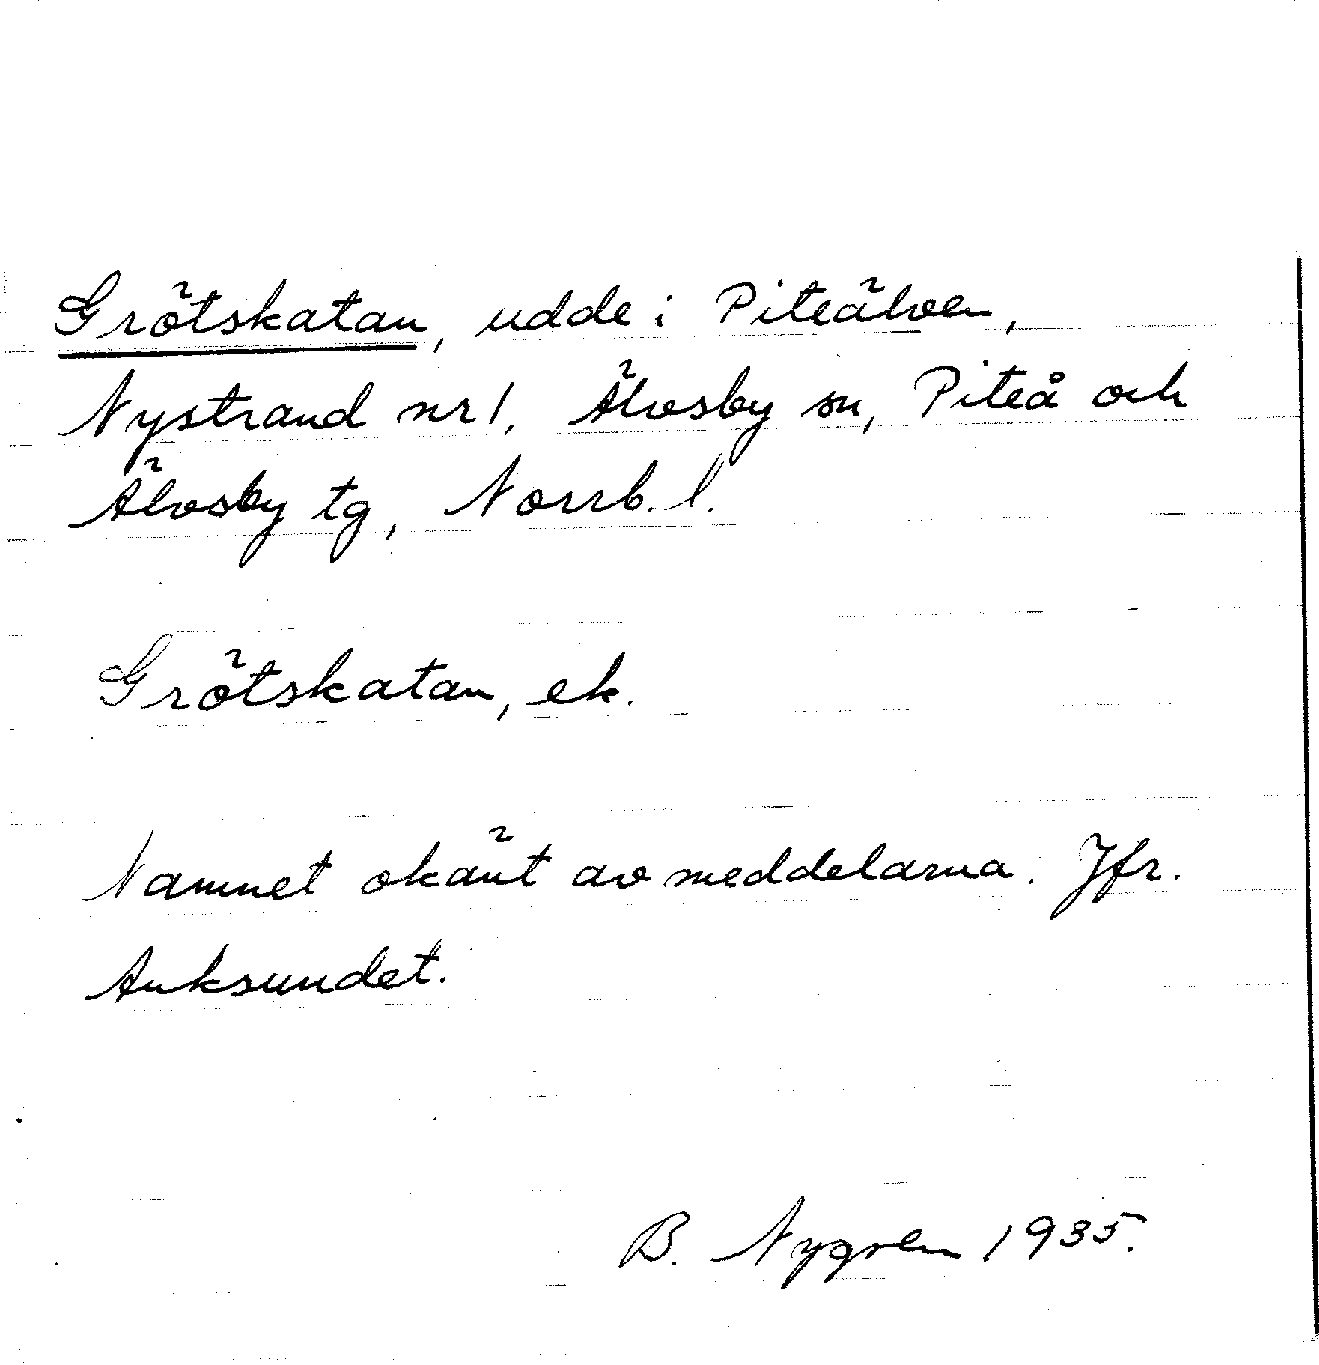 Grötskatan, udde i Piteälven,
Nystrand nr 1, Älvsby sn, Piteå och
Älvsby tg, Norrb. l.
Grötskatan, ek.
Namnet okänt av meddelarna. Jfr.
Anksundet.
B. Nygren 1935.